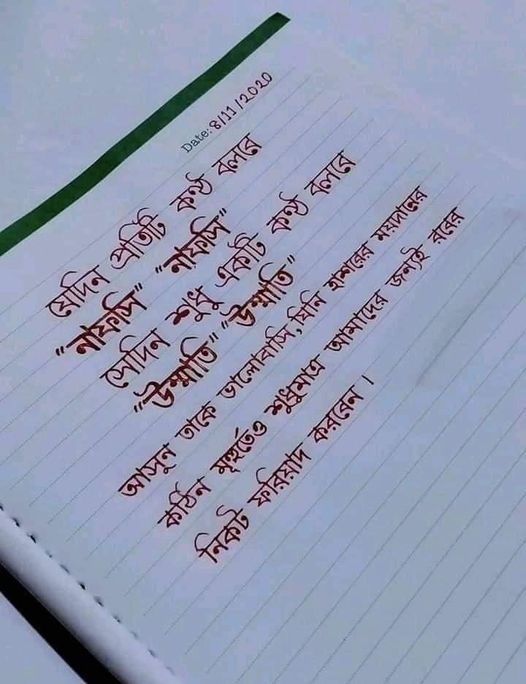 Date: 8/11/2020
যেদিন প্রতিটি কন্ঠ বলবে
"নাফসি" "নাফসি"
সেদিন শুধু একটি কন্ঠ বলবে
"উম্মাতি" "উম্মাতি"
আসুন তাকে ভালোবাসি,যিনি হাশরের ময়দানের
কঠিন মুহুর্তেও শুধুমাত্র আমাদের জন্যই রবের
নিকট ফরিয়াদ করবেন।